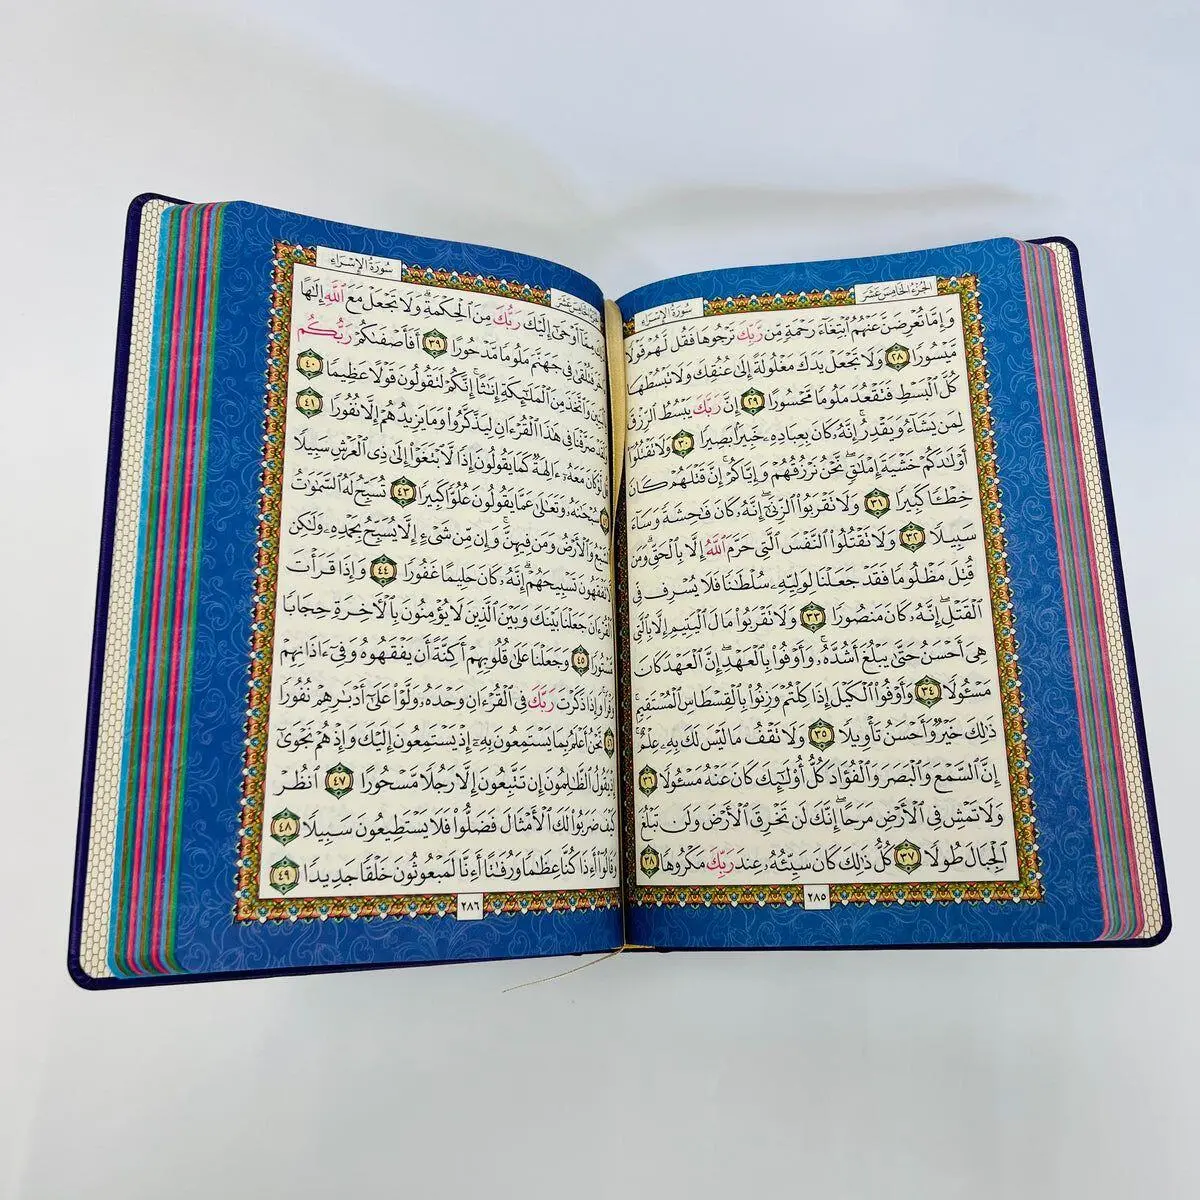 الجُزْءُ الخَامِسَ عَشَرَ
سُورَةُ الإِسْرَاءِ
وَإِمَّا تُعْرِضَنَّ عَنْهُمُ ٱبْتِغَآءَ رَحْمَةٍ مِّن رَّبِّكَ تَرْجُوهَا فَقُل لَّهُمْ قَوْلًا
مَّيْسُورًا ٢٨ وَلَا تَجْعَلْ يَدَكَ مَغْلُولَةً إِلَىٰ عُنُقِكَ وَلَا تَبْسُطْهَا
كُلَّ ٱلْبَسْطِ فَتَقْعُدَ مَلُومًا مَّحْسُورًا ٢٩ إِنَّ رَبَّكَ يَبْسُطُ ٱلرِّزْقَ
لِمَن يَشَآءُ وَيَقْدِرُ ۚ إِنَّهُۥ كَانَ بِعِبَادِهِۦ خَبِيرًۢا بَصِيرًا ٣٠ وَلَا تَقْتُلُوٓا۟
أَوْلَٰدَكُمْ خَشْيَةَ إِمْلَٰقٍ ۖ نَّحْنُ نَرْزُقُهُمْ وَإِيَّاكُمْ ۚ إِنَّ قَتْلَهُمْ كَانَ
خِطْـًٔا كَبِيرًا ٣١ وَلَا تَقْرَبُوا۟ ٱلزِّنَىٰٓ ۖ إِنَّهُۥ كَانَ فَٰحِشَةً وَسَآءَ
سَبِيلًا ٣٢ وَلَا تَقْتُلُوا۟ ٱلنَّفْسَ ٱلَّتِى حَرَّمَ ٱللَّهُ إِلَّا بِٱلْحَقِّ ۗ وَمَن
قُتِلَ مَظْلُومًا فَقَدْ جَعَلْنَا لِوَلِيِّهِۦ سُلْطَٰنًا فَلَا يُسْرِف فِّى
ٱلْقَتْلِ ۖ إِنَّهُۥ كَانَ مَنصُورًا ٣٣ وَلَا تَقْرَبُوا۟ مَالَ ٱلْيَتِيمِ إِلَّا بِٱلَّتِى
هِىَ أَحْسَنُ حَتَّىٰ يَبْلُغَ أَشُدَّهُۥ ۚ وَأَوْفُوا۟ بِٱلْعَهْدِ ۖ إِنَّ ٱلْعَهْدَ كَانَ
مَسْـُٔولًا ٣٤ وَأَوْفُوا۟ ٱلْكَيْلَ إِذَا كِلْتُمْ وَزِنُوا۟ بِٱلْقِسْطَاسِ ٱلْمُسْتَقِيمِ ۚ
ذَٰلِكَ خَيْرٌ وَأَحْسَنُ تَأْوِيلًا ٣٥ وَلَا تَقْفُ مَا لَيْسَ لَكَ بِهِۦ عِلْمٌ ۚ
إِنَّ ٱلسَّمْعَ وَٱلْبَصَرَ وَٱلْفُؤَادَ كُلُّ أُو۟لَٰٓئِكَ كَانَ عَنْهُ مَسْـُٔولًا ٣٦
وَلَا تَمْشِ فِى ٱلْأَرْضِ مَرَحًا ۖ إِنَّكَ لَن تَخْرِقَ ٱلْأَرْضَ وَلَن تَبْلُغَ
ٱلْجِبَالَ طُولًا ٣٧ كُلُّ ذَٰلِكَ كَانَ سَيِّئُهُۥ عِندَ رَبِّكَ مَكْرُوهًا ٣٨
٢٨٥
سُورَةُ الإِسْرَاءِ
مِمَّآ أَوْحَىٰٓ إِلَيْكَ رَبُّكَ مِنَ ٱلْحِكْمَةِ ۗ وَلَا تَجْعَلْ مَعَ ٱللَّهِ إِلَٰهًا
فَتُلْقَىٰ فِى جَهَنَّمَ مَلُومًا مَّدْحُورًا ٣٩ أَفَأَصْفَىٰكُمْ رَبُّكُم
وَٱتَّخَذَ مِنَ ٱلْمَلَٰٓئِكَةِ إِنَٰثًا ۚ إِنَّكُمْ لَتَقُولُونَ قَوْلًا عَظِيمًا ٤٠
صَرَّفْنَا فِى هَٰذَا ٱلْقُرْءَانِ لِيَذَّكَّرُوا۟ وَمَا يَزِيدُهُمْ إِلَّا نُفُورًا ٤١
لَّوْ كَانَ مَعَهُۥٓ ءَالِهَةٌ كَمَا يَقُولُونَ إِذًا لَّٱبْتَغَوْا۟ إِلَىٰ ذِى ٱلْعَرْشِ سَبِيلًا
سُبْحَٰنَهُۥ وَتَعَٰلَىٰ عَمَّا يَقُولُونَ عُلُوًّا كَبِيرًا ٤٣ تُسَبِّحُ لَهُ ٱلسَّمَٰوَٰتُ
وَٱلْأَرْضُ وَمَن فِيهِنَّ ۚ وَإِن مِّن شَىْءٍ إِلَّا يُسَبِّحُ بِحَمْدِهِۦ وَلَٰكِن
لَّا تَفْقَهُونَ تَسْبِيحَهُمْ ۗ إِنَّهُۥ كَانَ حَلِيمًا غَفُورًا ٤٤ وَإِذَا قَرَأْتَ
ٱلْقُرْءَانَ جَعَلْنَا بَيْنَكَ وَبَيْنَ ٱلَّذِينَ لَا يُؤْمِنُونَ بِٱلْـَٔاخِرَةِ حِجَابًا
مَّسْتُورًا ٤٥ وَجَعَلْنَا عَلَىٰ قُلُوبِهِمْ أَكِنَّةً أَن يَفْقَهُوهُ وَفِىٓ ءَاذَانِهِمْ
وَقْرًا ۚ وَإِذَا ذَكَرْتَ رَبَّكَ فِى ٱلْقُرْءَانِ وَحْدَهُۥ وَلَّوْا۟ عَلَىٰٓ أَدْبَٰرِهِمْ نُفُورًا
نَّحْنُ أَعْلَمُ بِمَا يَسْتَمِعُونَ بِهِۦٓ إِذْ يَسْتَمِعُونَ إِلَيْكَ وَإِذْ هُمْ نَجْوَىٰٓ
إِذْ يَقُولُ ٱلظَّٰلِمُونَ إِن تَتَّبِعُونَ إِلَّا رَجُلًا مَّسْحُورًا ٤٧ ٱنظُرْ
كَيْفَ ضَرَبُوا۟ لَكَ ٱلْأَمْثَالَ فَضَلُّوا۟ فَلَا يَسْتَطِيعُونَ سَبِيلًا ٤٨
وَقَالُوٓا۟ أَءِذَا كُنَّا عِظَٰمًا وَرُفَٰتًا أَءِنَّا لَمَبْعُوثُونَ خَلْقًا جَدِيدًا ٤٩
٢٨٦